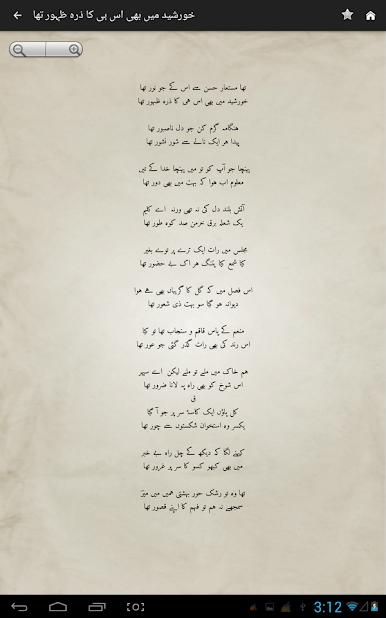 خورشید میں بھی اس ہی کا ذرہ ظہور تھا
تھا مستعار حسن سے اس کے جو نور تھا
خورشید میں بھی اس ہی کا ذرہ ظہور تھا
ہنگامہ گرم کن جو دل ناصبور تھا
پیدا ہر ایک نالے سے شور نشور تھا
پہنچا جو آپ کو تو میں پہنچا خدا کے تئیں
معلوم اب ہوا کہ بہت میں بھی دور تھا
آتش بلند دل کی نہ تھی ورنہ اے کلیم
یک شعلہ برق خرمن صد کوہ طور تھا
مجلس میں رات ایک ترے پرتوے بغیر
کیا شمع کیا پتنگ ہر اک بے حضور تھا
اس فصل میں کہ گل کا گریباں بھی ہے ہوا
دیوانہ ہو گیا سو بہت ذی شعور تھا
منعم کے پاس قاقم و سنجاب تھا تو کیا
اس رند کی بھی رات گذر گئی جو عور تھا
ہم خاک میں ملے تو ملے لیکن اے سپہر
اس شوخ کو بھی راہ پہ لانا ضرور تھا
ق
کل پاؤں ایک کاسۂ سر پر جو آ گیا
یکسر وہ استخوان شکستوں سے چور تھا
کہنے لگا کہ دیکھ کے چل راہ بے خبر
میں بھی کبھو کسو کا سر پر غرور تھا
تھا وہ تو رشک حور بہشتی ہمیں میں میرؔ
سمجھے نہ ہم تو فہم کا اپنے قصور تھا
3:12